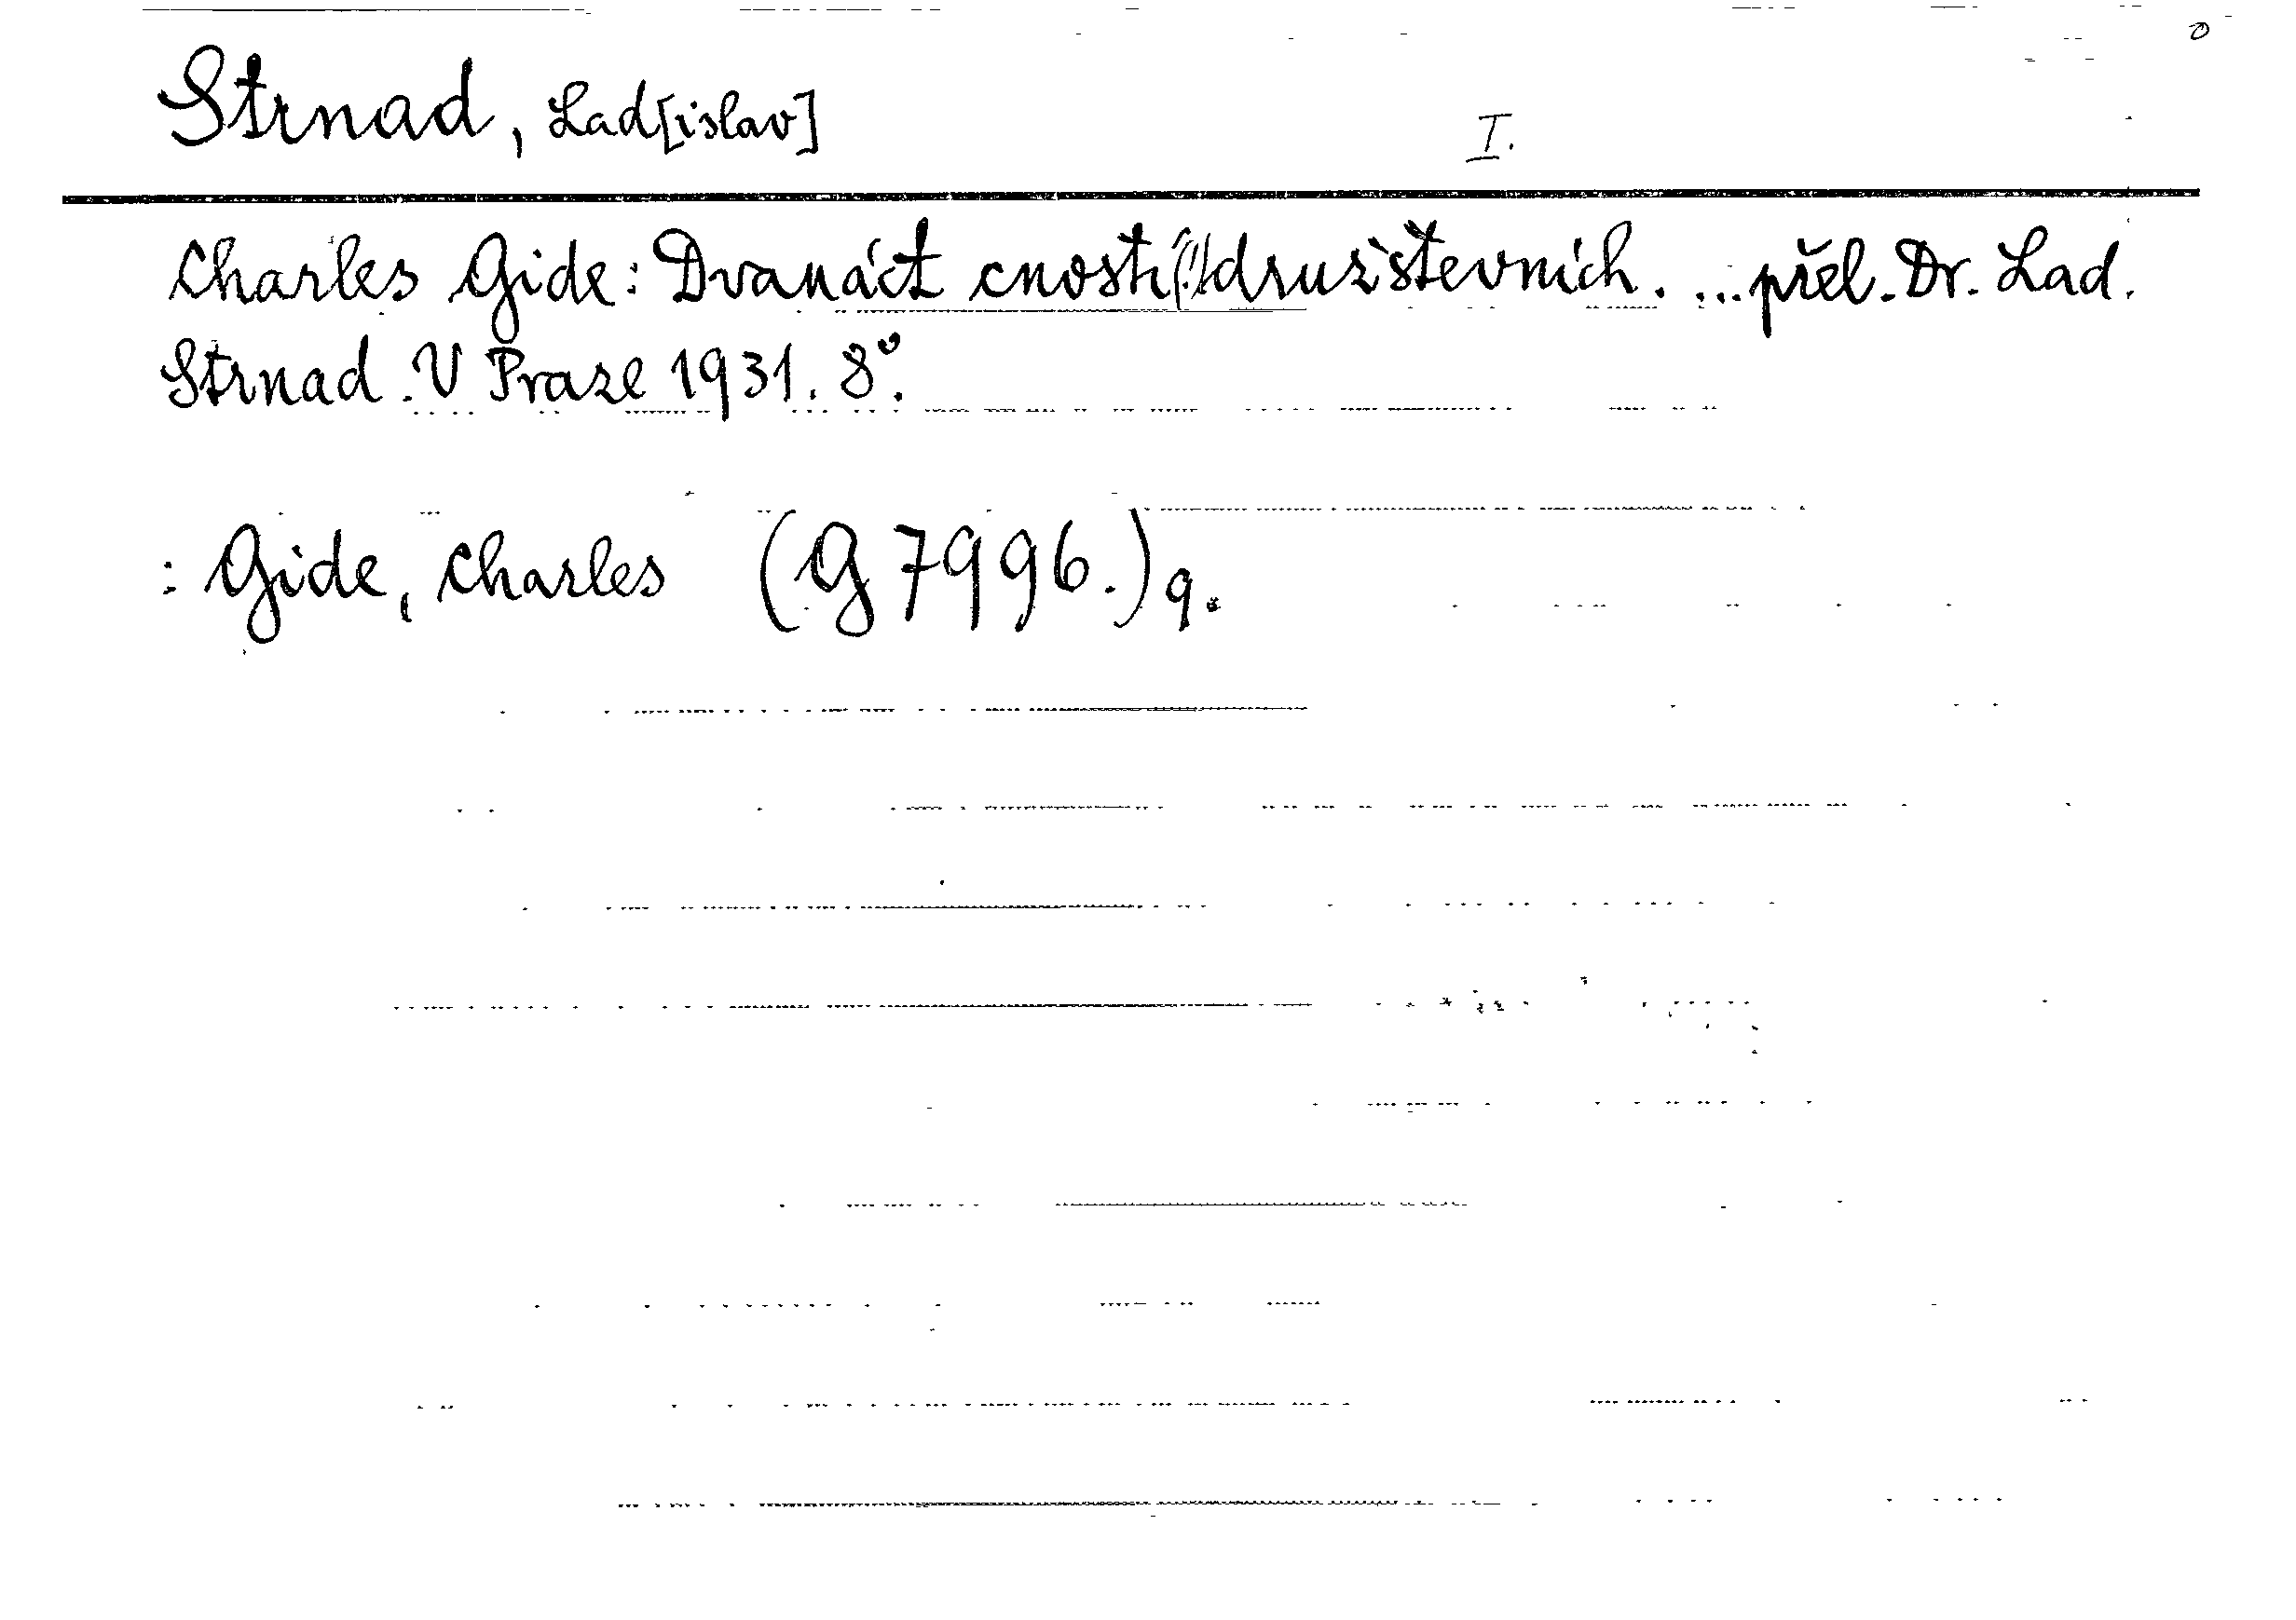 Strnad, Lad[islav]
I.
Charles Gide: Dvanáct cností(!)družštevních. ... přel. Dr. Lad.
Strnad. V Praze 1931. 8°.
: Gide, Charles (G 7996.) 9.